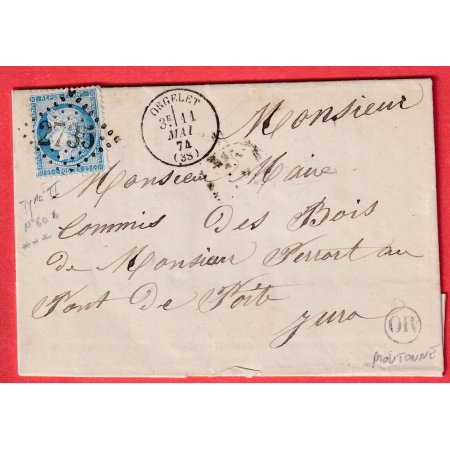 2735
ORGELET
3E 11
MAI
74
(38)
Monsieur
Monsieur Maire
Commis Des Bois
de Monsieur Perrort au
Pont de Poite
Jura
TYPE II
N°60
OR
MOUTONNE